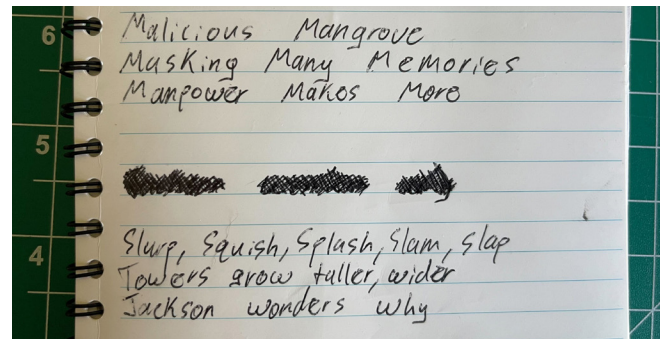 6
Malicious Mangrove
Masking Many Memories
Manpower Makes More
5
Slurp, Squish, Splash, Slam, slap
4
Towers grow taller, wider
Jackson wonders why